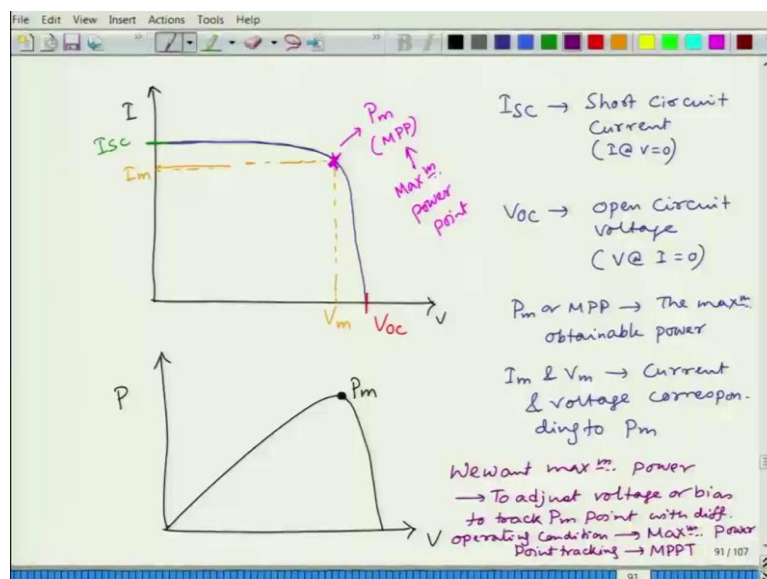 File Edit View Insert Actions Tools Help
B I
I
Isc
Im
Pm
(MPP)
Max m.
power
point
Vm
Voc
V
P
Pm
V
Isc → Short Circuit
Current
(I@ V=0)
Voc → open Circuit
voltage
(V@ I=0)
Pm or MPP → The max m.
obtainable power
Im & Vm → Current
& voltage correspon-
ding to Pm
We want max m. power
→ To adjust voltage or bias
to track Pm point with diff.
operating condition → Max m. Power
Point tracking → MPPT
91 / 107
91